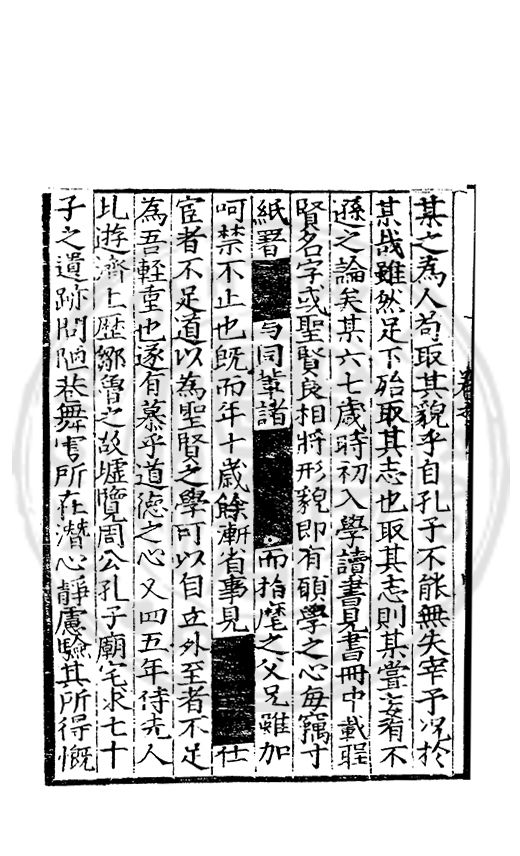 某之為人苟取其貌乎自孔子不能無失宰予况於
某哉雖然足下殆取其志也取其志則某嘗妄有不
遜之論矣某六七歲時初入學讀書見書冊中載聖
賢名字或聖賢良相將形貌即有願學之心每竊寸
紙署 与同輩諸 而指麾之父兄雖加
呵禁不止也既而年十歲餘漸省事見 仕
宦者不足道以為聖賢之學可以自立外至者不足
為吾輊重也遂有慕乎道德之心又四五年侍先人
北遊濟上歷鄒魯之故墟覽周公孔子廟宅求七十
子之遺跡問陋巷舞雩所在潛心靜慮驗其所得慨